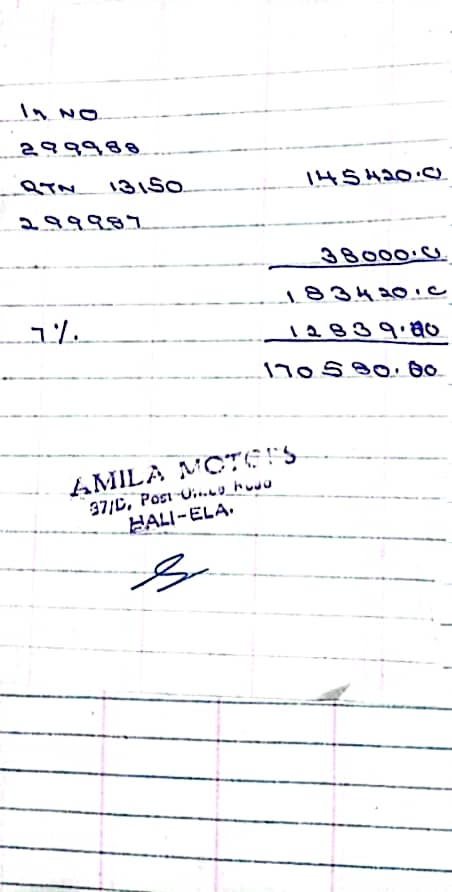 In NO
299988
RTN 13150 145420.0
299987
38000.0
183420.0
7%. 12839.40
170580.60
AMILA MOTORS
37/D, Post Office Road
HALI-ELA.